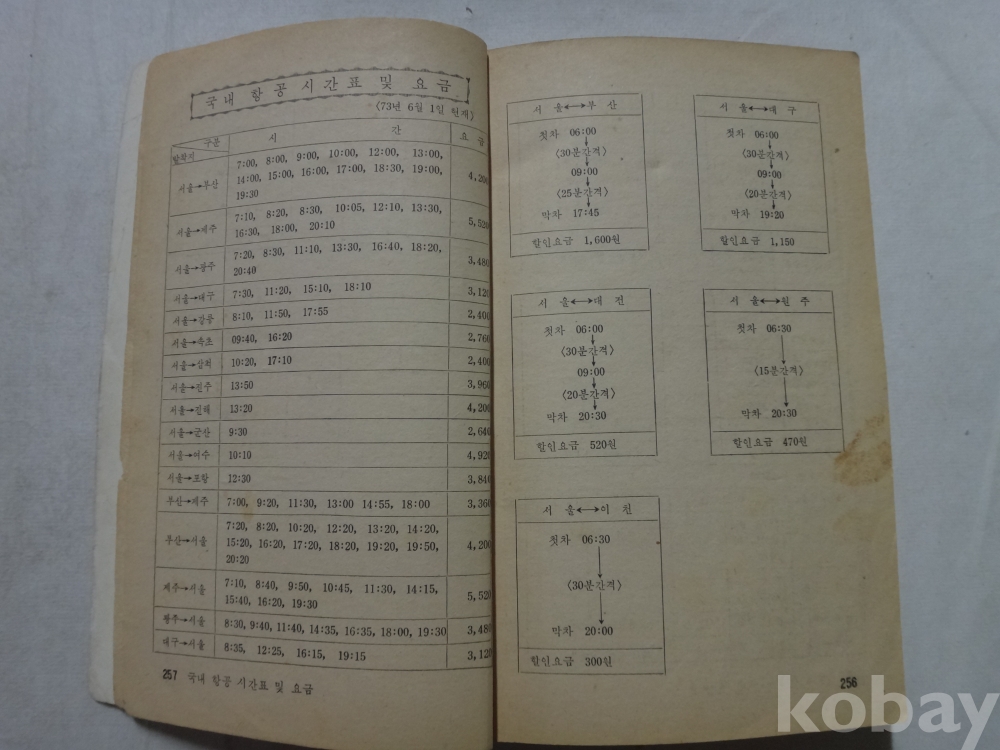 국내 항공 시간표 및 요금
〈73년 6월 1일 현재〉
구분 시 간 요 금
발착지
서울→부산 7:00, 8:00, 9:00, 10:00, 12:00, 13:00, 4,200
14:00, 15:00, 16:00, 17:00, 18:30, 19:00,
19:30
서울→제주 7:10, 8:20, 8:30, 10:05, 12:10, 13:30, 5,520
16:30, 18:00, 20:10
서울→광주 7:20, 8:30, 11:10, 13:30, 16:40, 18:20, 3,480
20:40
서울→대구 7:30, 11:20, 15:10, 18:10 3,120
서울→강릉 8:10, 11:50, 17:55 2,400
서울→속초 09:40, 16:20 2,760
서울→삼척 10:20, 17:10 2,400
서울→진주 13:50 3,960
서울→진해 13:20 4,200
서울→군산 9:30 2,640
서울→여수 10:10 4,920
서울→포항 12:30 3,840
부산→제주 7:00, 9:20, 11:30, 13:00 14:55, 18:00 3,360
부산→서울 7:20, 8:20, 10:20, 12:20, 13:20, 14:20, 4,200
15:20, 16:20, 17:20, 18:20, 19:20, 19:50,
20:20
제주→서울 7:10, 8:40, 9:50, 10:45, 11:30, 14:15, 5,520
15:40, 16:20, 19:30
광주→서울 8:30, 9:40, 11:40, 14:35, 16:35, 18:00, 19:30 3,480
대구→서울 8:35, 12:25, 16:15, 19:15 3,120
257 국내 항공 시간표 및 요금
서 울↔부 산
첫차 06:00
↓
〈30분간격〉
↓
09:00
↓
〈25분간격〉
↓
막차 17:45
할인요금 1,600원
서 울↔대 구
첫차 06:00
↓
〈30분간격〉
↓
09:00
↓
〈20분간격〉
↓
막차 19:20
할인요금 1,150
서 울↔대 전
첫차 06:00
↓
〈30분간격〉
↓
09:00
↓
〈20분간격〉
↓
막차 20:30
할인요금 520원
서 울↔원 주
첫차 06:30
↓
〈15분간격〉
↓
막차 20:30
할인요금 470원
서 울↔이 천
첫차 06:30
↓
〈30분간격〉
↓
막차 20:00
할인요금 300원
256
kobay